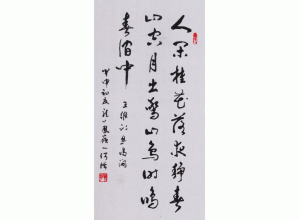 人闲桂花落夜静春
山空月出惊山鸟时鸣
春涧中
王维诗鸟鸣涧